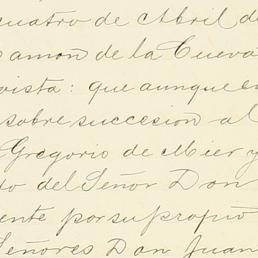 cuatro de Abril de
Ramon de la Cueva
vista: que aunque en
sobre succesion al
Gregorio de Mier y
do del Señor Don
ente por su propio
Señores Don Juan